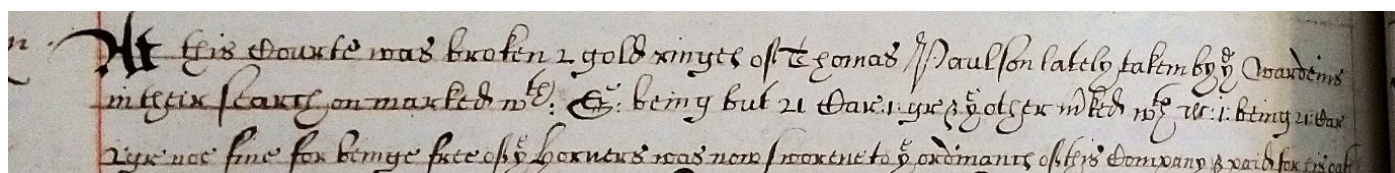 At this Courte was broken 2 gold ringes of Thomas Paulson lately taken by ye Wardeins
in their search, on marked wth: E: being but 21 Car: 1: gr & ye other mked wth W: 1: being 21: Car
2 gr noe fine for beinge free of ye Horners was now sworne to ye ordinants of this Company & paid for his oath